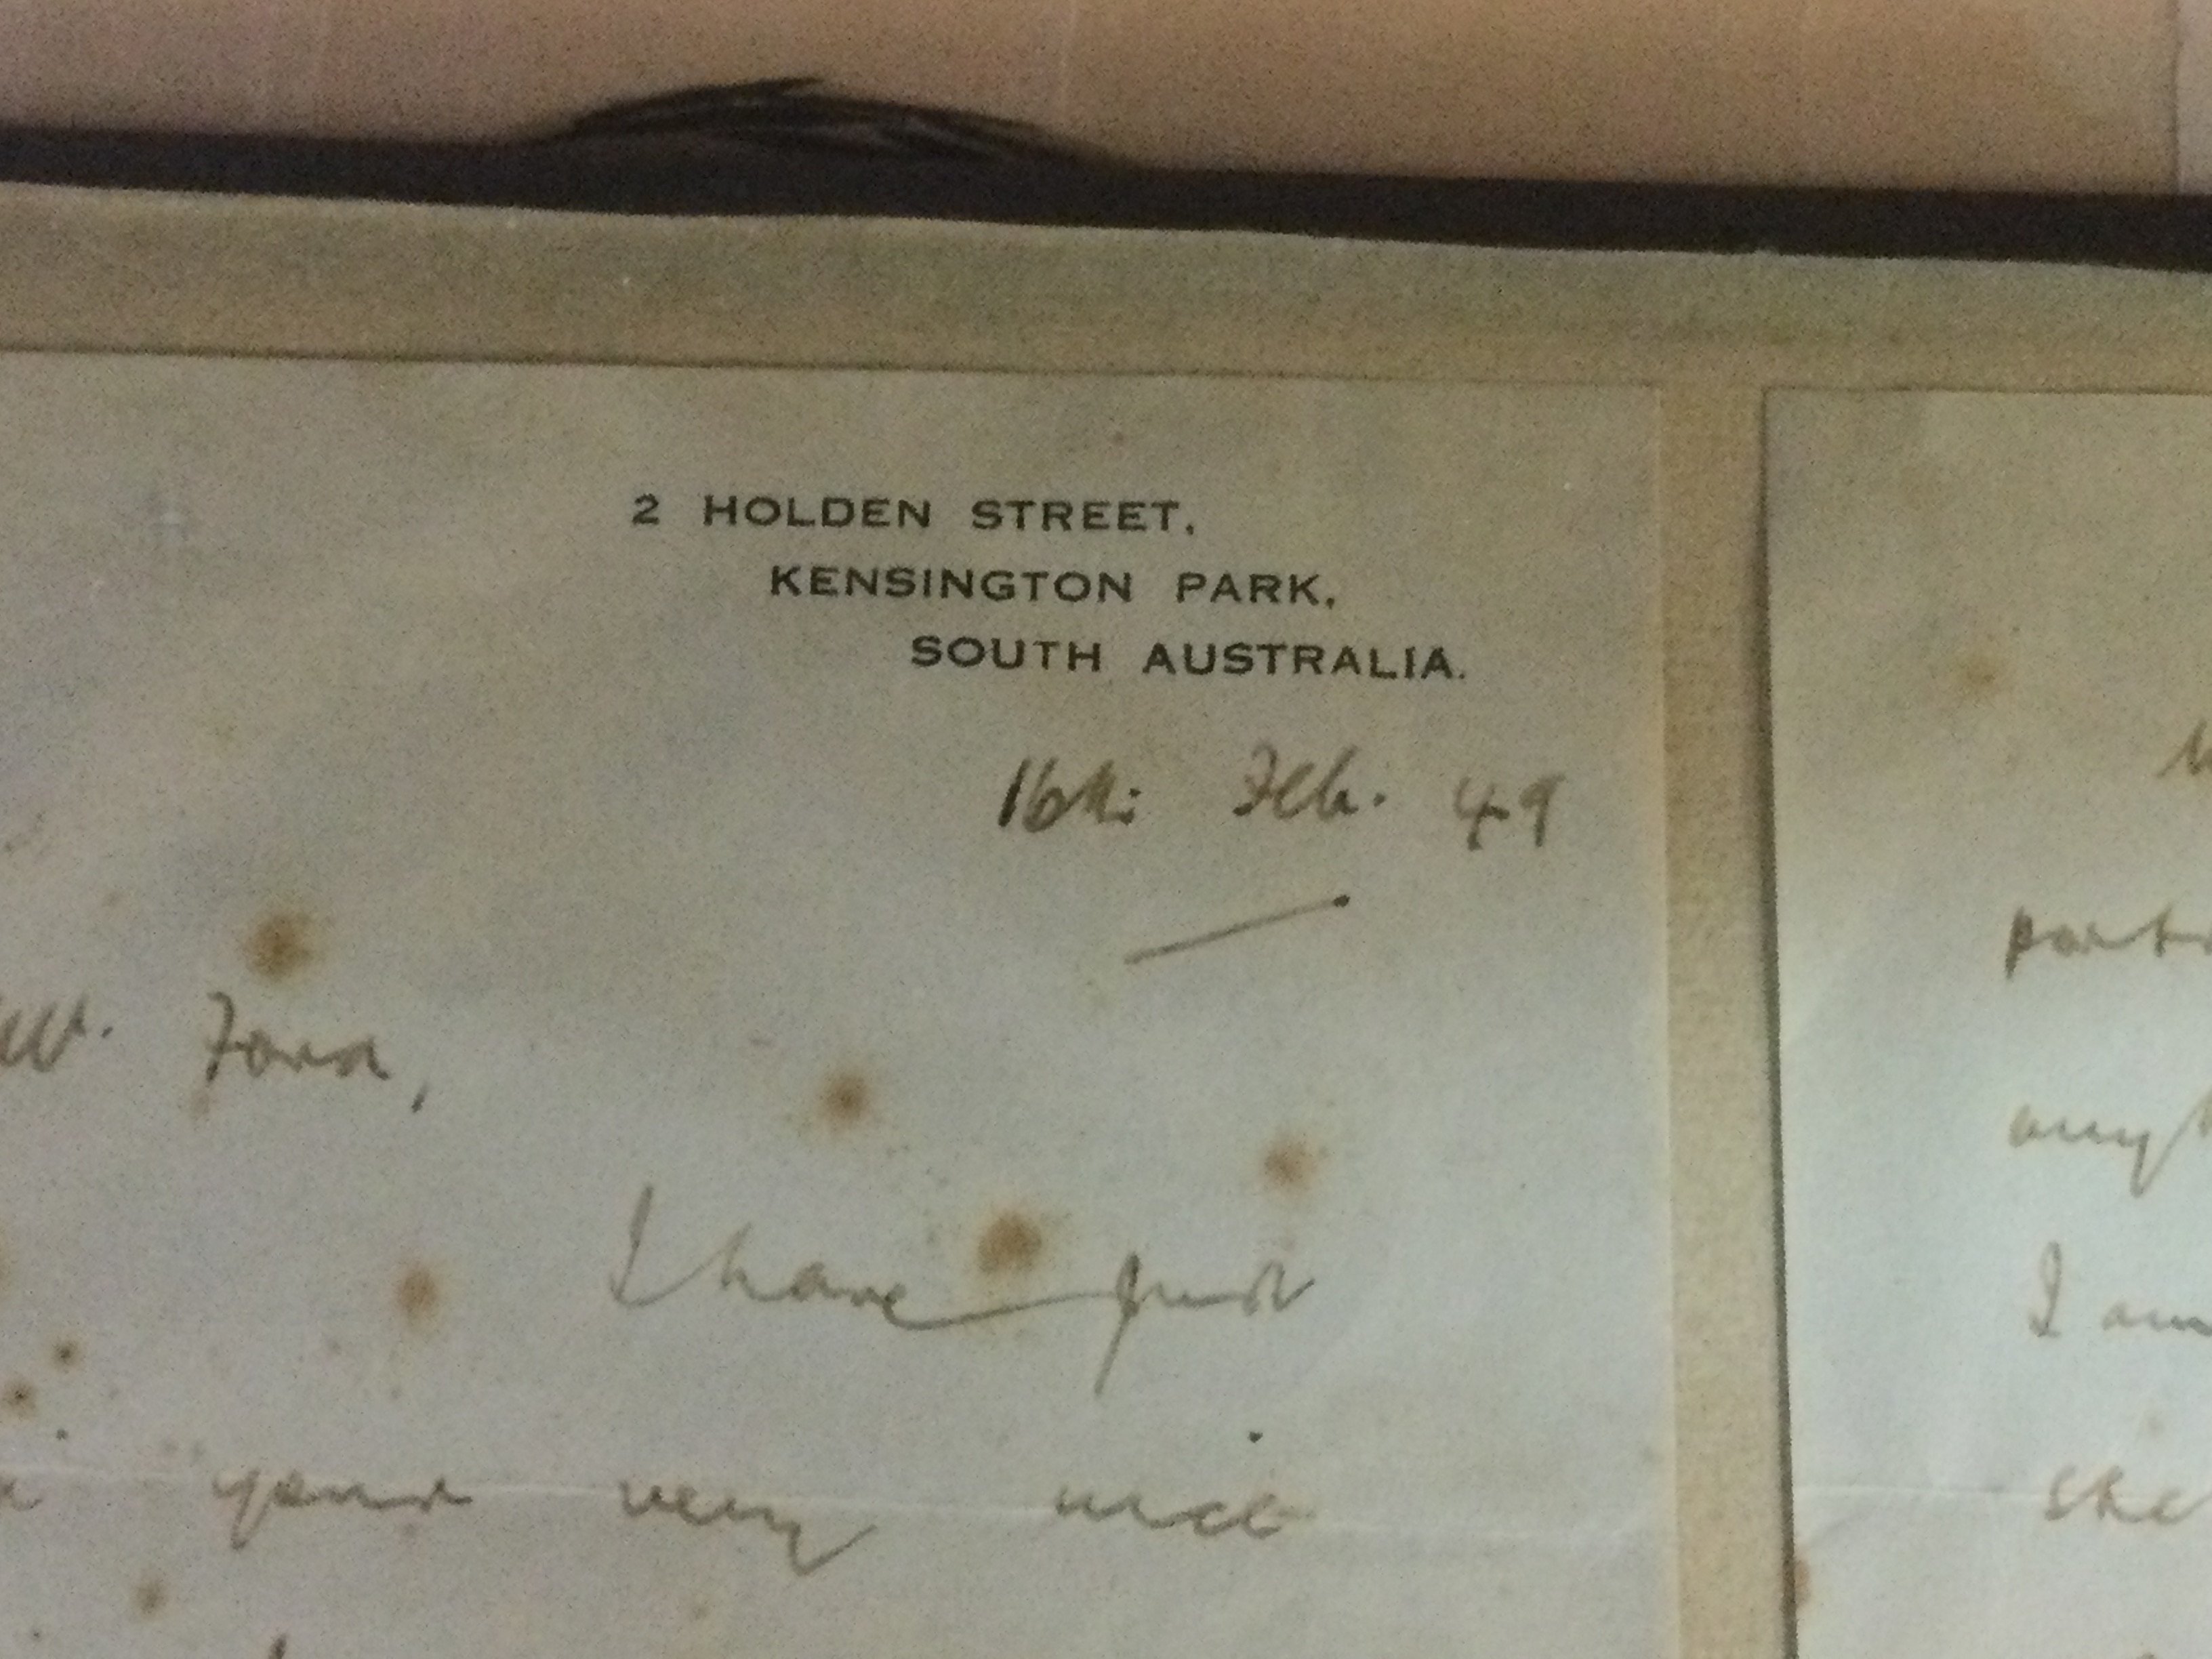 2 HOLDEN STREET,
KENSINGTON PARK,
SOUTH AUSTRALIA.
16th. Feb. 49
Ford,
I have just
your very nice
I am
she